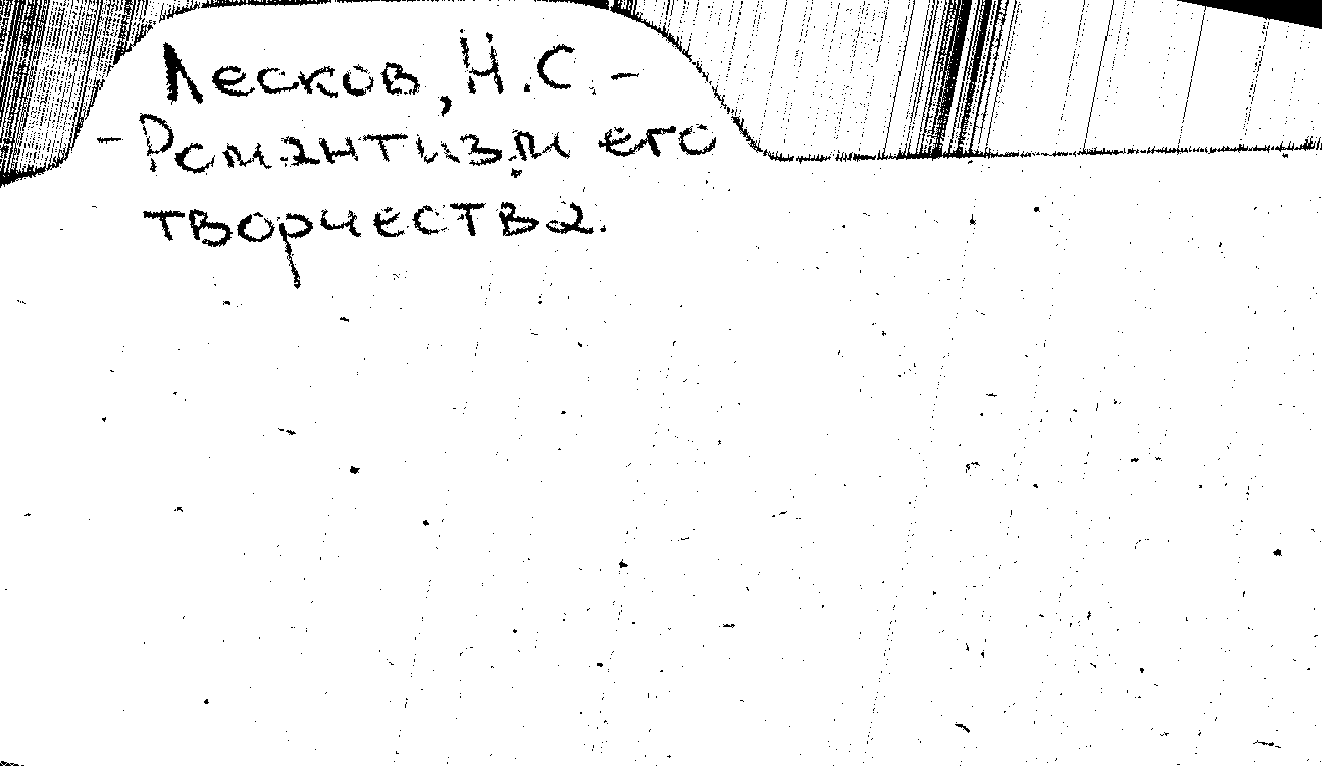 Лесков, Н.С. -
- Романтизм его
творчества.